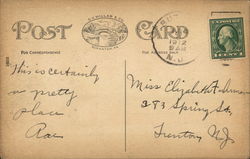 POST CARD
FOR CORRESPONDENCE
FOR ADDRESS ONLY
1912
N.J.
This is certainly
a pretty
place
Rae
Miss Elizabeth
273 Spring St.
Trenton N.J.